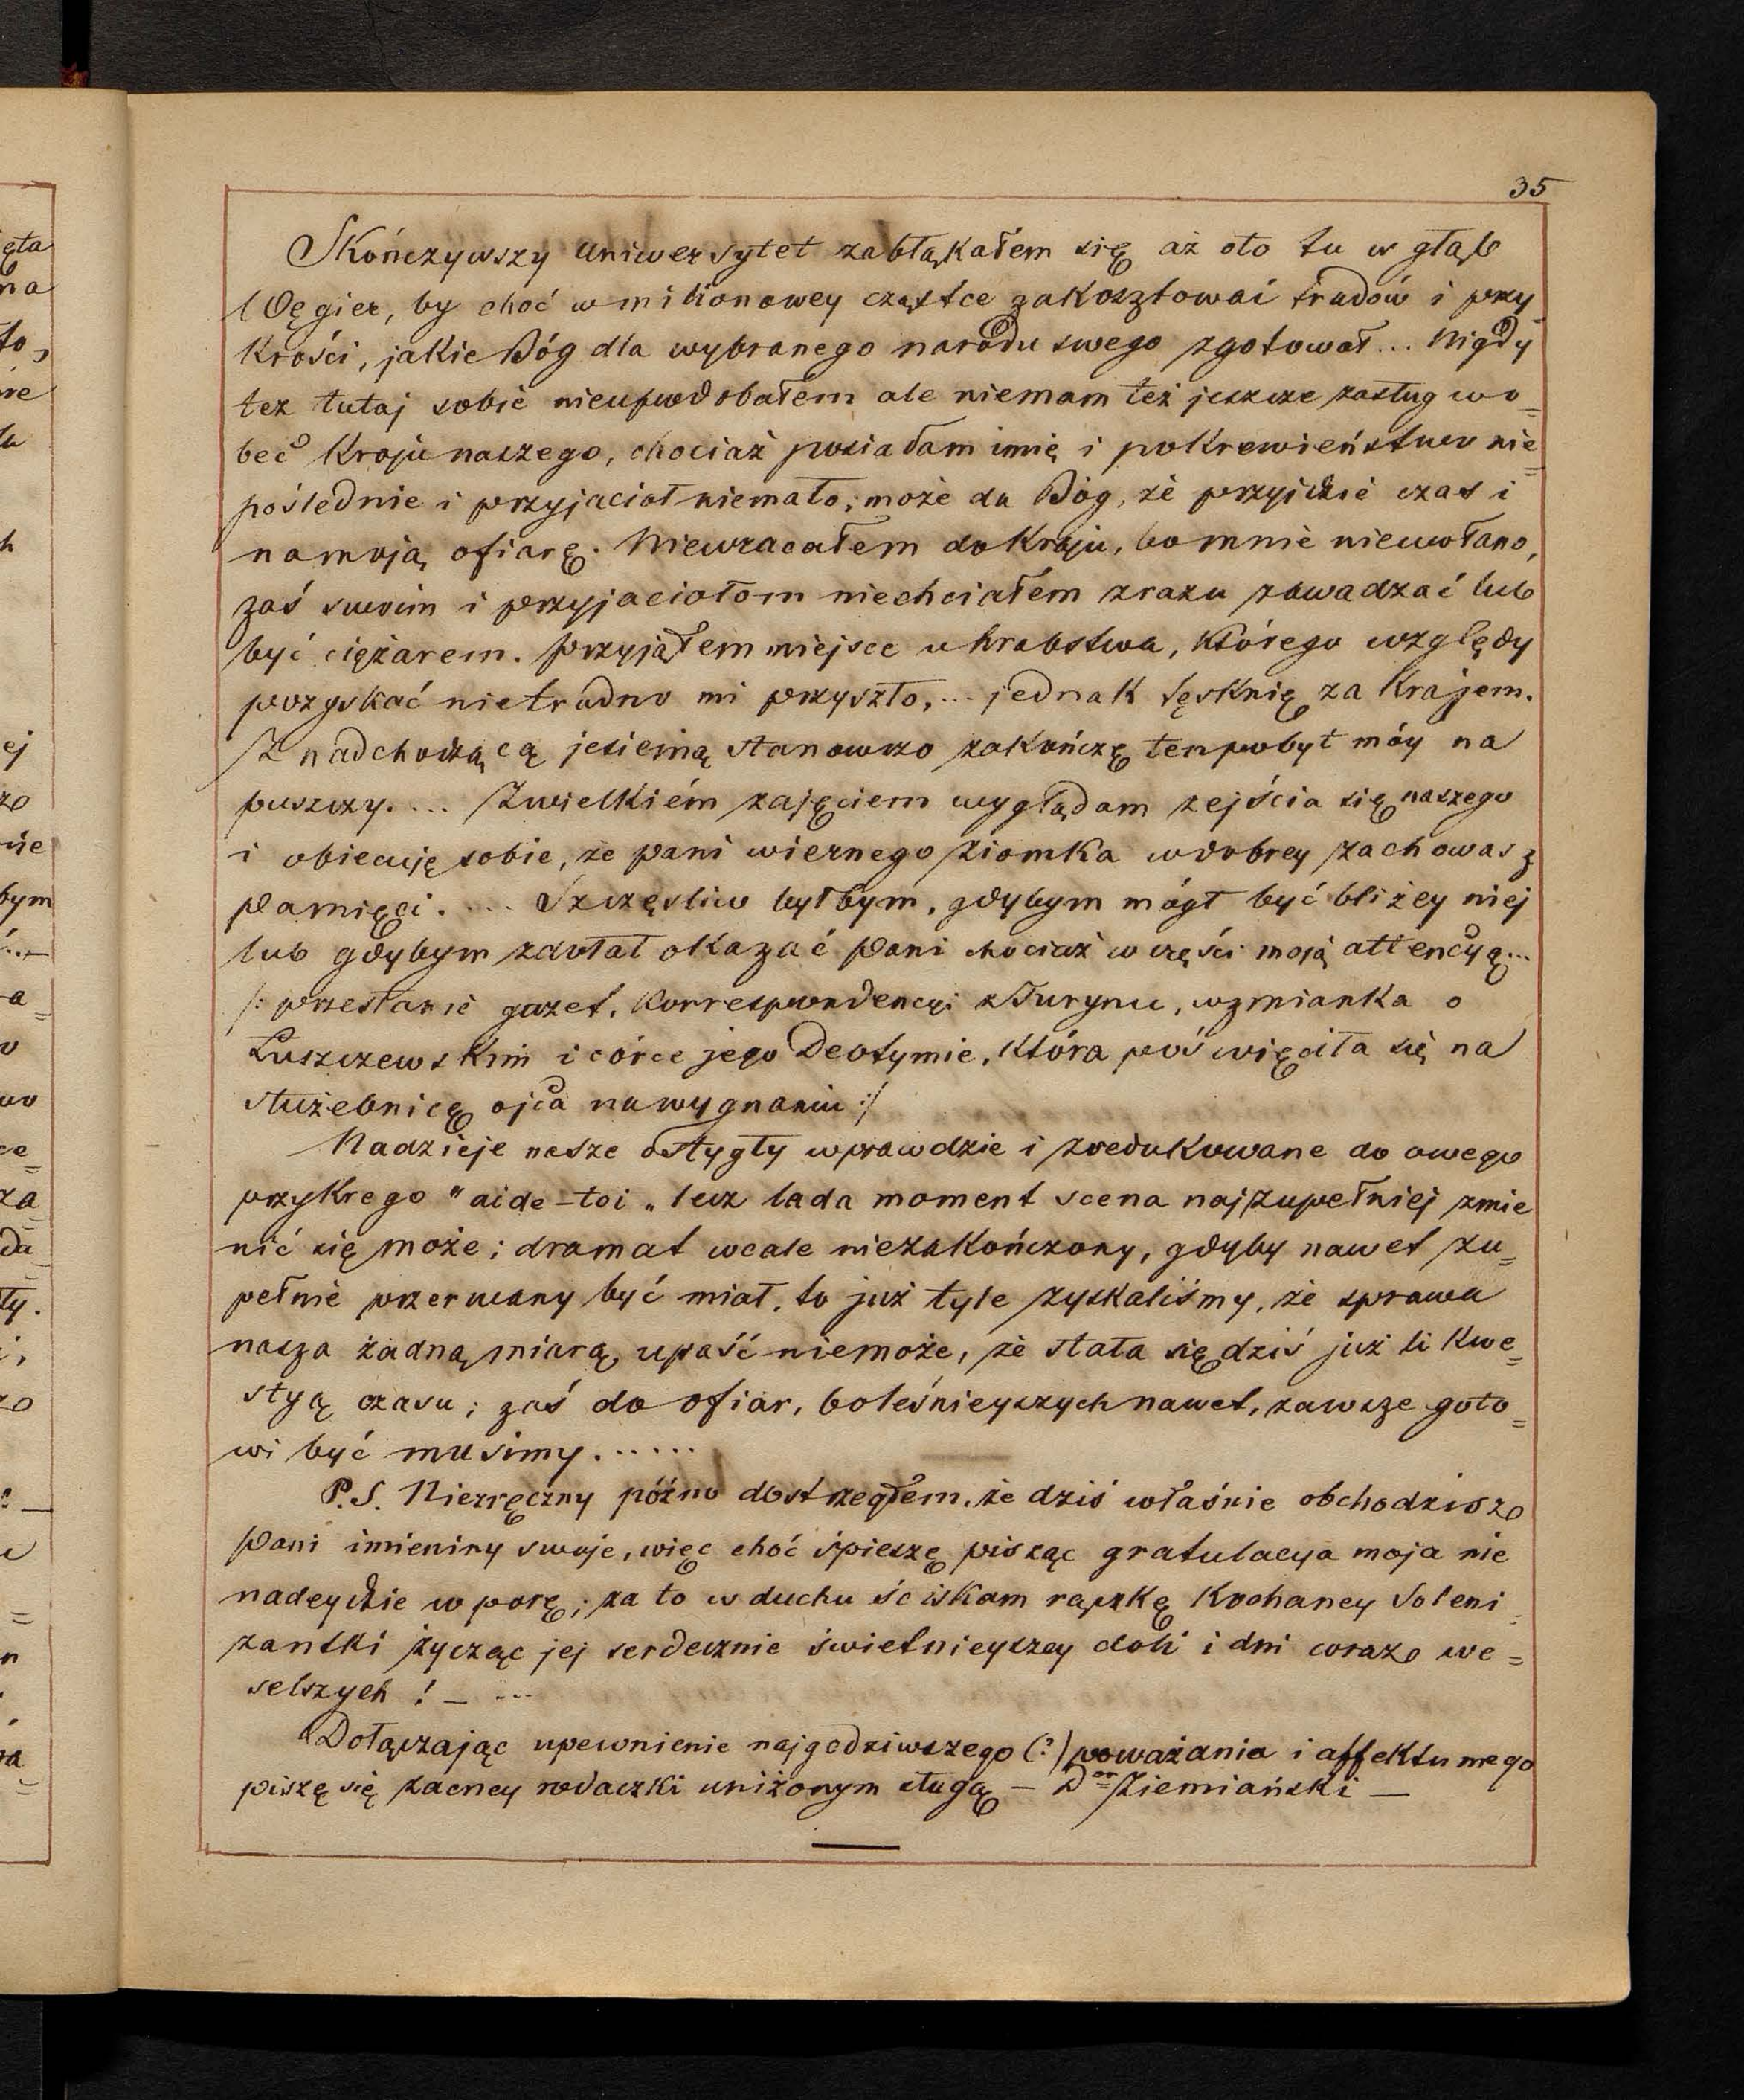 35
Skończywszy uniwersytet zabłąkałem się aż oto tu w głąb
Węgier, by choć w milionowey cząstce zakosztować trudów i przy-
krości, jakie Bóg dla wybranego narodu swego zgotował... Nigdy
też tutaj sobie nieupodobałem ale niemam też jeszcze zasług wo=
bec kraju naszego, chociaż posiadam imię i pokrewieństwo nie=
poślednie i przyjaciół niemało; może da Bóg, że przyidzie czas i
na moją ofiarę. Niewracałem do kraju, bo mnie niewołano,
zaś swoim i przyjaciołom niechciałem zrazu zawadzać lub
być ciężarem. Przyjąłem miejsce u hrabstwa, którego względy
pozyskać nietrudno mi przyszło,... jednak tęsknię za krajem.
Z nadchodzącą jesienią stanowczo zakończę ten pobyt móy na
puszczy.... Z wielkiém zajęciem wyglądam zejścia się naszego
i obiecuję sobie, że pani wiernego ziomka w dobrey zachowasz
pamięci.... Szczęśliw byłbym, gdybym mógł być bliżey niej
lub gdybym zdołał okazać Pani chociaż w części moją attencyą...
/: przesłanie gazet, korrespondencyi z Turynu, wzmianka o
Łuszczewskim i córce jego Deotymie, która poświęciła się na
służebnicę ojca na wygnaniu :/
Nadzieje nasze ostygły wprawdzie i zredukowane do owego
przykrego "aide-toi„ lecz lada moment scena najzupełniej zmie
nić się może; dramat wcale niezakończony, gdyby nawet zu=
pełnie przerwany być miał, to już tyle zyskaliśmy, że sprawa
nasza żadną miarą upaść niemoże, że stała się dziś już li kwe=
styą czasu; zaś do ofiar, boleśnieyszych nawet, zawsze goto=
wi być musimy......
P.S. Niezręczny późno dostrzegłem, że dziś właśnie obchodzisz
Pani imieniny swoje, więc choć śpieszę pisząc gratulacya moja nie
nadeydzie w porę; za to w duchu ściskam rączkę kochaney Soleni=
zantki życząc jej serdecznie świetnieyszey doli i dni coraz we=
selszych! – ...
Dołączając upewnienie najgodziwszego (?) poważania i affektu mego
piszę się zacney rodaczki uniżonym sługą – Dor Ziemiański –